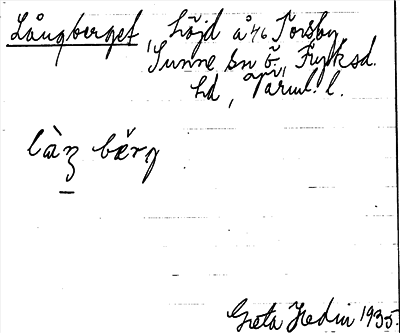 Långberget, höjd å 46 Torsby,
Sunne sn Ö. Fryksd.
hd, Värml. l.
làŋ bärg
Greta Hedin 1935.